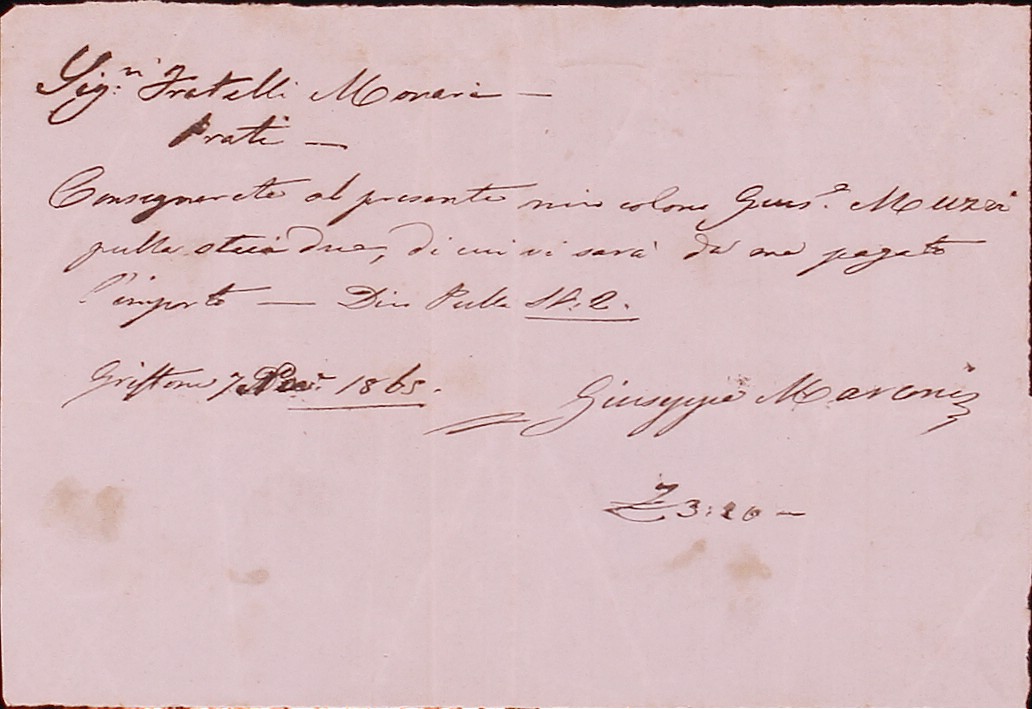 Sig.ri Fratelli Monari —
Prati —
Consegnerete al presente mio colono Gius.e Muzzi
pulla staia due, di cui vi sarà da me pagato
l'importo — Dico Pulla St: 2.
Griffone 7 1865.
Giuseppe Marconi
£ 3:20 —